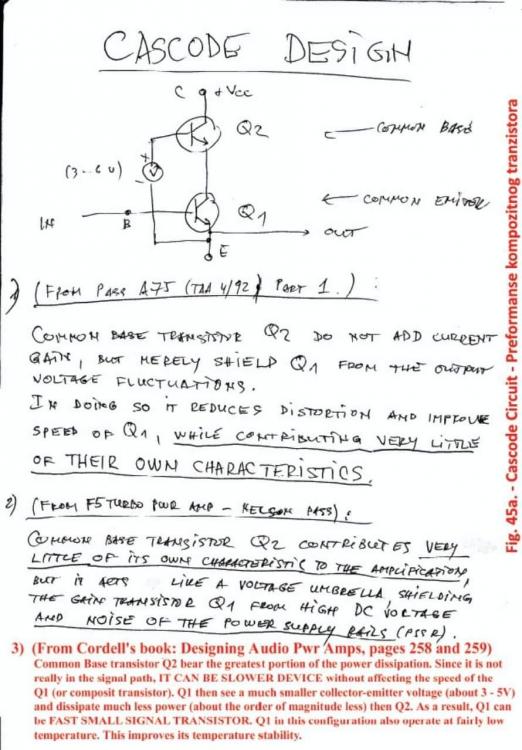 CASCODE DESIGN
C
+Vcc
Q2
COMMON BASE
+
(3..6V)
V
-
Q1
COMMON EMITER
IN
B
OUT
E
1) (FROM PASS A75 (TAA 4/92) PART 1.) :
COMMON BASE TRANSISTOR Q2 DO NOT ADD CURRENT
GAIN, BUT MERELY SHIELD Q1 FROM THE OUTPUT
VOLTAGE FLUCTUATIONS.
IN DOING SO IT REDUCES DISTORTION AND IMPROVE
SPEED OF Q1, WHILE CONTRIBUTING VERY LITTLE
OF THEIR OWN CHARACTERISTICS.
2) (FROM F5 TURBO PWR AMP - NELSON PASS) :
COMMON BASE TRANSISTOR Q2 CONTRIBUTES VERY
LITTLE OF ITS OWN CHARACTERISTIC TO THE AMPLIFICATION,
BUT IT ACTS LIKE A VOLTAGE UMBRELLA SHIELDING
THE GAIN TRANSISTOR Q1 FROM HIGH DC VOLTAGE
AND NOISE OF THE POWER SUPPLY RAILS (PSSR).
3) (From Cordell's book: Designing Audio Pwr Amps, pages 258 and 259)
Common Base transistor Q2 bear the greatest portion of the power dissipation. Since it is not
really in the signal path, IT CAN BE SLOWER DEVICE without affecting the speed of the
Q1 (or composit transistor). Q1 then see a much smaller collector-emitter voltage (about 3 - 5V)
and dissipate much less power (about the order of magnitude less) then Q2. As a result, Q1 can
be FAST SMALL SIGNAL TRANSISTOR. Q1 in this configuration also operate at fairly low
temperature. This improves its temperature stability.
Fig. 45a. - Cascode Circuit - Preformanse kompozitnog tranzistora